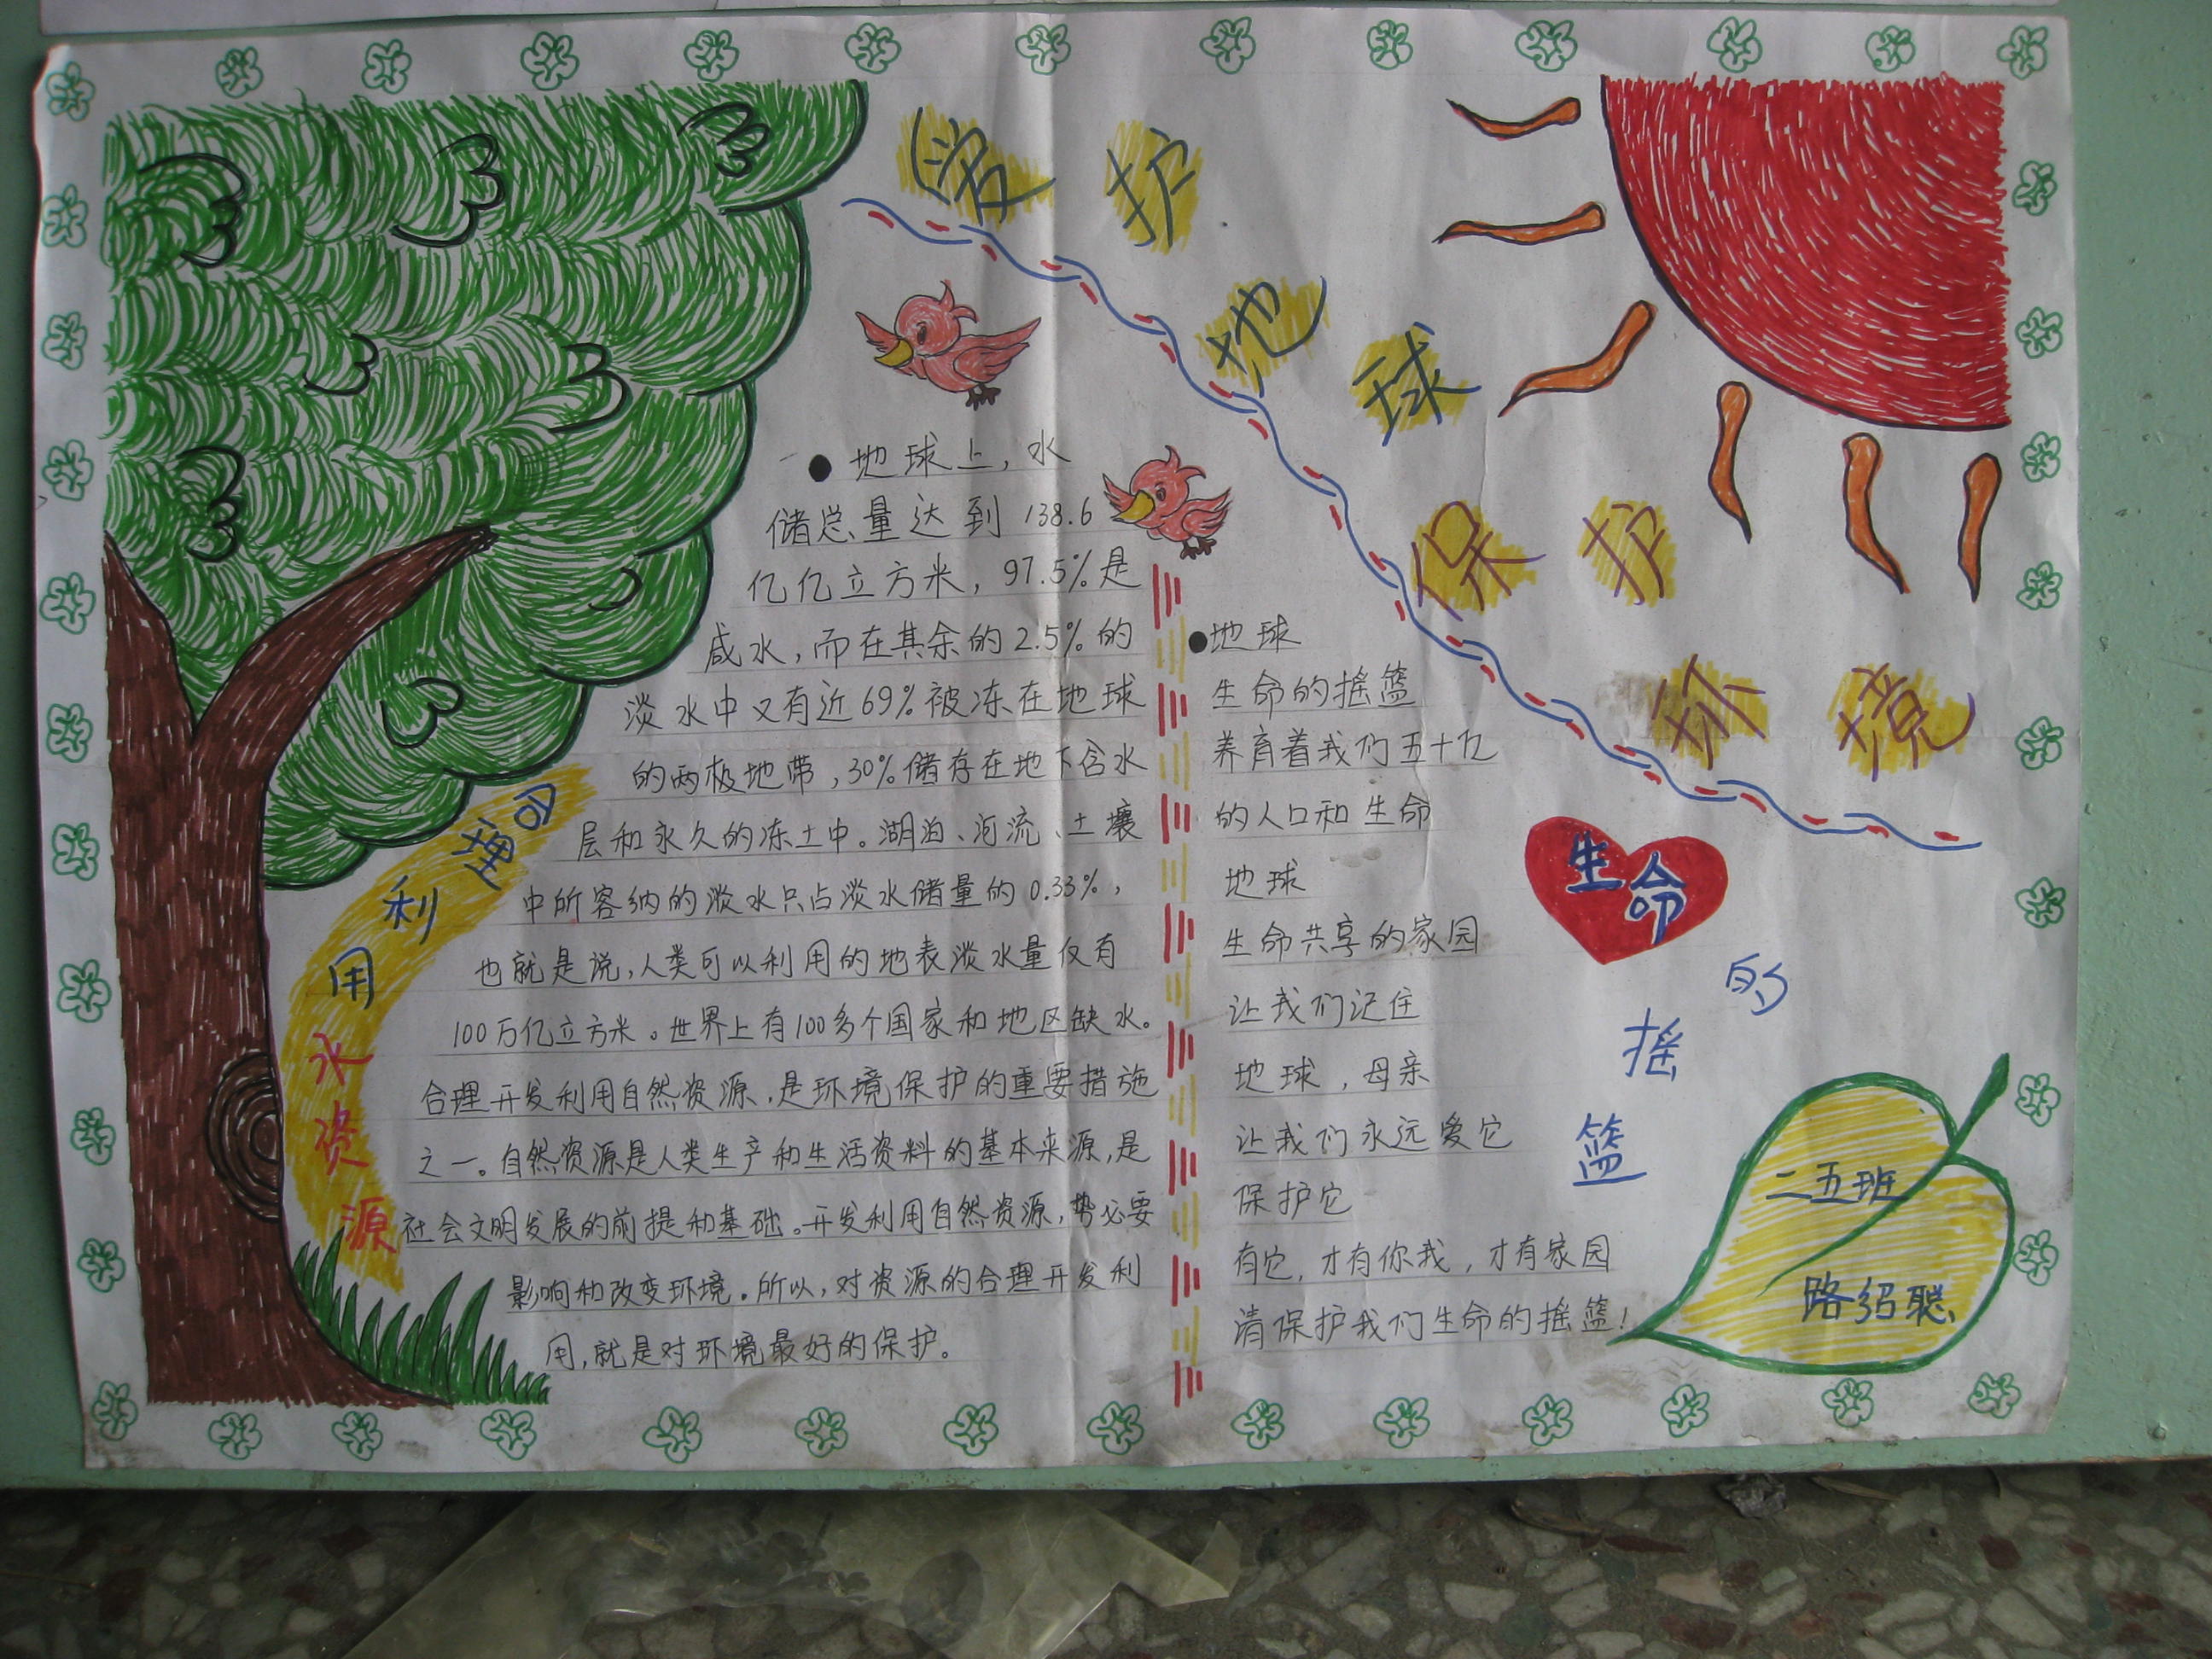 爱护
地球
保护
环境
合理利用水资源
●地球上,水
储总量达到138.6
亿亿立方米,97.5%是
咸水,而在其余的2.5%的
淡水中又有近69%被冻在地球
的两极地带,30%储存在地下含水
层和永久的冻土中。湖泊、河流、土壤
中所容纳的淡水只占淡水储量的0.33%,
也就是说,人类可以利用的地表淡水量仅有
100万亿立方米。世界上有100多个国家和地区缺水。
合理开发利用自然资源,是环境保护的重要措施
之一。自然资源是人类生产和生活资料的基本来源,是
社会文明发展的前提和基础。开发利用自然资源,势必要
影响和改变环境。所以,对资源的合理开发利
用,就是对环境最好的保护。
生命的摇篮
●地球
生命的摇篮
养育着我们五十亿
的人口和生命
地球
生命共享的家园
让我们记住
地球,母亲
让我们永远爱它
保护它
有它,才有你我,才有家园
清保护我们生命的摇篮!
二五班
路绍聪